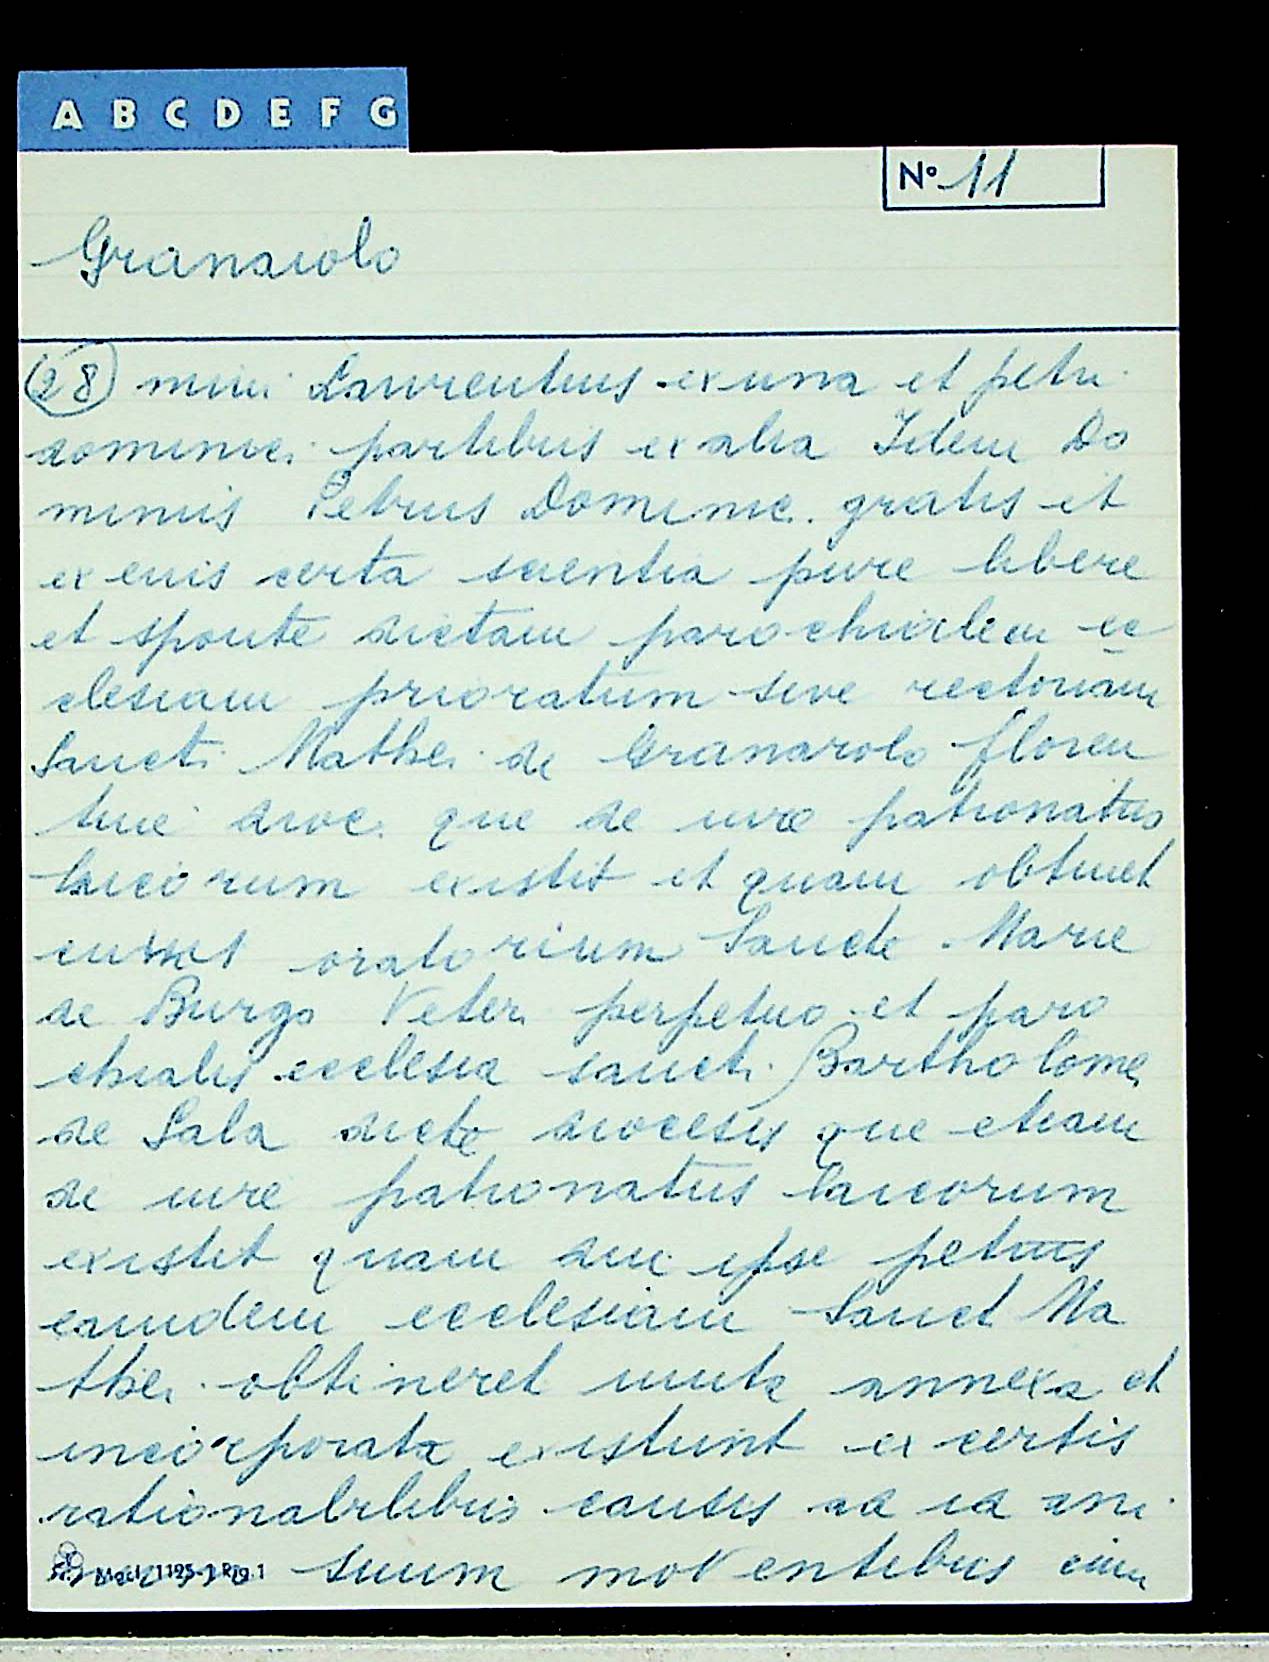 A B C D E F G
N° 11
Granaiolo
(28) mini Laurentius ex una et petri
dominici partibus ex alia Idem Do
minus Petrus Dominic. gratis et
ex eius certa scientia pure libere
et sponte dictam parochialem ec
clesiam prioratum sive rectoriam
Sancti Mathei de Granarolo floren
tine dioc. que de iure patronatus
laicorum existit et quam obtinet
oratorium Sancte Marie
de Burgo Veteri perpetuo et paro
chialis ecclesia sancti Bartholomei
de Sala dicte diocesis que etiam
de iure patronatus laicorum
existit quam diu ipse petrus
eamdem ecclesiam Sancti Ma
thei obtineret unita annexa et
incorporata existunt ex certis
rationabilibus causis ad id ani
suum moventibus cum